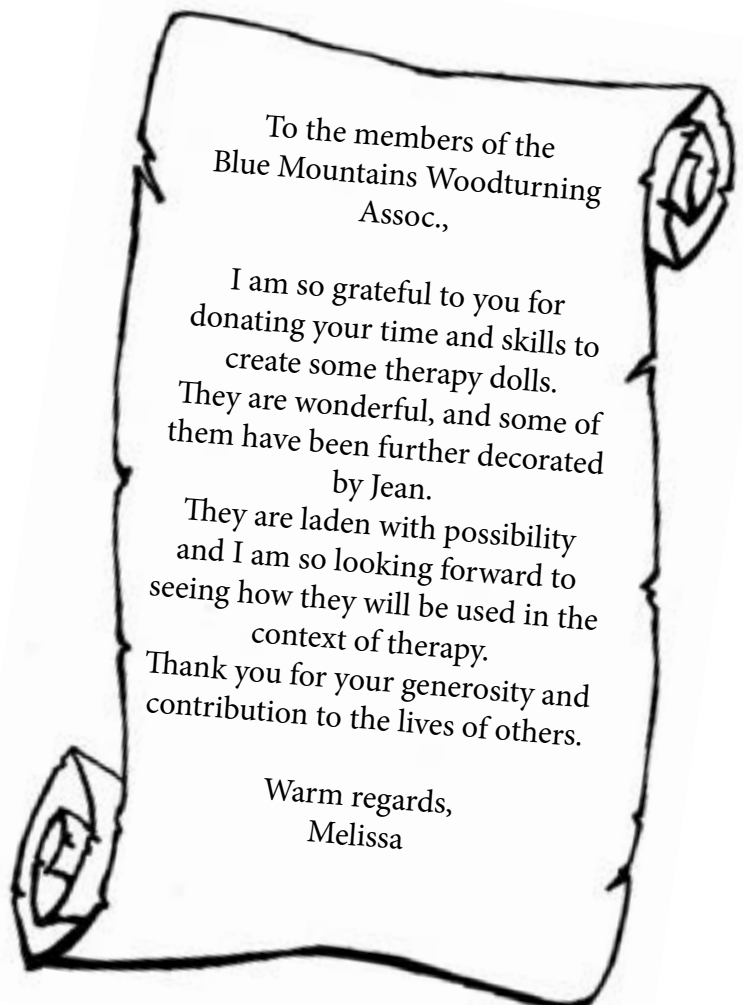 To the members of the
Blue Mountains Woodturning
Assoc.,
I am so grateful to you for
donating your time and skills to
create some therapy dolls.
They are wonderful, and some of
them have been further decorated
by Jean.
They are laden with possibility
and I am so looking forward to
seeing how they will be used in the
context of therapy.
Thank you for your generosity and
contribution to the lives of others.
Warm regards,
Melissa